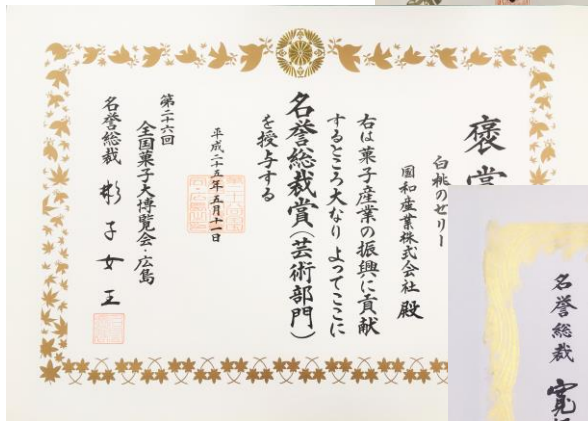 褒賞
白桃のゼリー
國和産業株式会社 殿
右は菓子産業の振興に貢献
するところ大なり よってここに
名誉総裁賞(芸術部門)
を授与する
平成二十五年五月十一日
第二十六回
全国菓子大博覧会・広島
名誉総裁 彬子女王
名誉総裁 寛